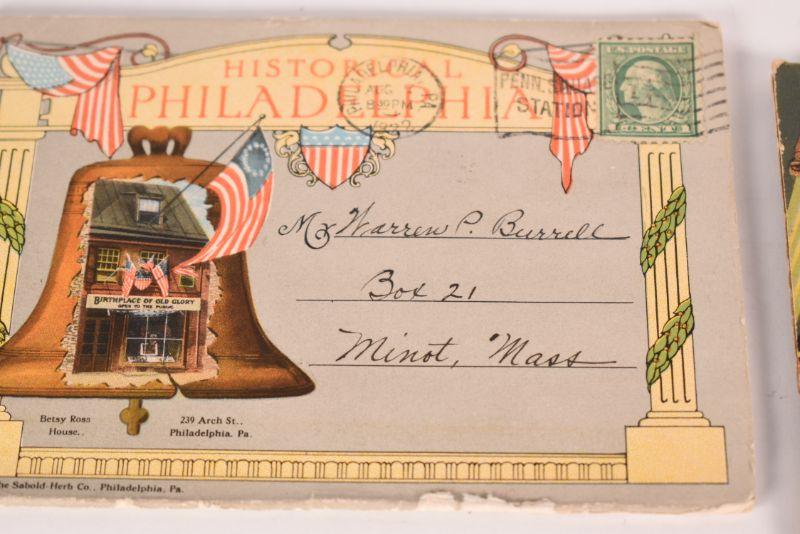 HISTORICAL
PHILADELPHIA
PHILADELPHIA, PA.
AUG
8-30PM
1922
PENN. SQUARE
STATION
U.S. POSTAGE
CENTS
Mr Warren P. Burrell
Box 21
Minot, Mass
BIRTHPLACE OF OLD GLORY
OPEN TO THE PUBLIC
Betsy Ross
House..
239 Arch St..
Philadelphia. Pa.
he Sabold-Herb Co., Philadelphia, Pa.